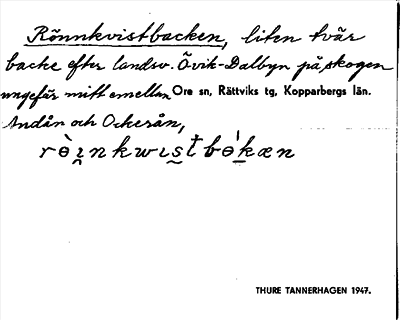 Rönnkvistbacken, liten tvär
backe efter landsv. Övik-Dalbyn på skogen
ungefär mitt emellan Ore sn, Rättviks tg, Kopparbergs län.
Andån och Ockerån,
THURE TANNERHAGEN 1947.